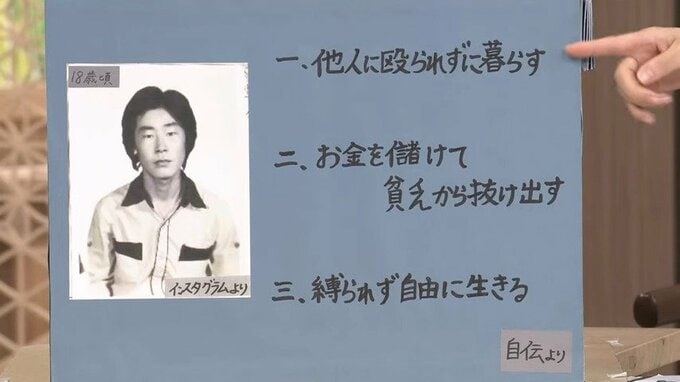 18歳頃
インスタグラムより
一、他人に殴られずに暮らす
二、お金を儲けて
貧乏から抜け出す
三、縛られず自由に生きる
自伝より